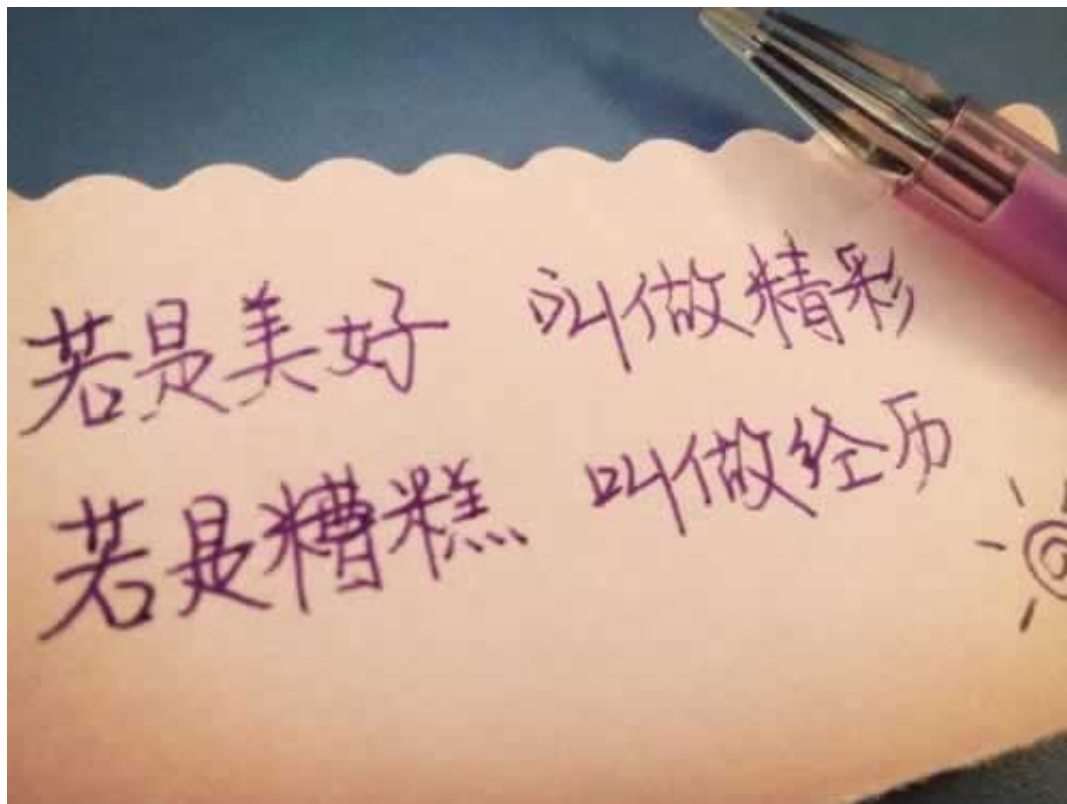 若是美好 叫做精彩
若是糟糕 叫做经历